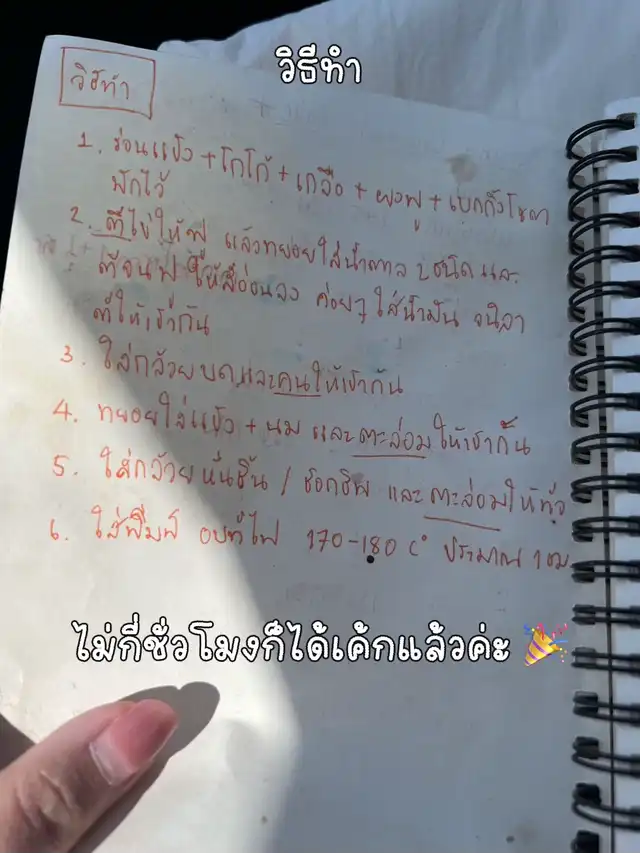 วิธีทำ
วิธีทำ
1. ร่อนแป้ง + โกโก้ + เกลือ + ผงฟู + เบกกิ้งโซดา
พักไว้
2. ตีไข่ให้ฟู แล้วทยอยใส่น้ำตาล 2 ชนิด และ
ตีจนฟู ให้สีอ่อนลง ค่อยๆ ใส่น้ำมัน วนิลา
ตีให้เข้ากัน
3. ใส่กล้วยบด และคนให้เข้ากัน
4. ทยอยใส่แป้ง + นม และตะล่อมให้เข้ากัน
5. ใส่กล้วยหั่นชิ้น / ช็อกชิพ และตะล่อมให้ทั่ว
6. ใส่พิมพ์ อบที่ไฟ 170-180 C° ประมาณ 1 ชม.
ไม่กี่ชั่วโมงก็ได้เค้กแล้วค่ะ 🎉